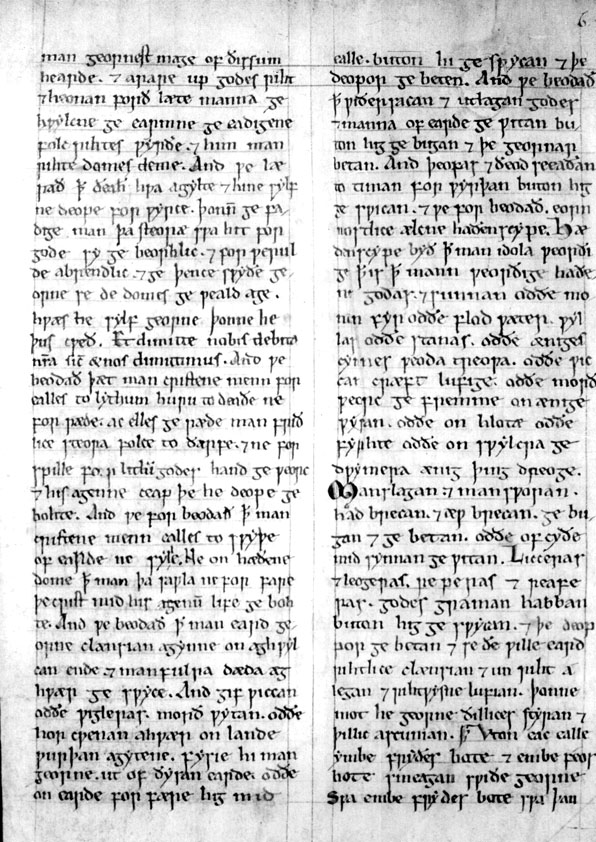 man geornest mage of ðissum
hearde. ⁊ arære up godes riht
⁊ heonan forð læte manna ge
hƿylcne ge earmne ge eadigene
folc rihtes ƿyrðe. ⁊ him man
rihte domes deme. And ƿe læ
rað ꝥ ðeah hƿa agylte ⁊ hine sylf
ne deope for ƿyrce. þonn̄ ge fa
dige man þa steore sƿa hit for
gode sy ge beorhlic. ⁊ for ƿorul
de abrendlic. ⁊ ge þence sƿyðe ge
orne se ðe domes ge ƿeald age.
hƿæs he sylf georne þonne he
þus cƿeð. Et dimitte nobis debita
nr̄a sic̄ & nos dimittimus. And ƿe
beodað þæt man cristene menn for
ealles to lythum huru to deaðe ne
for ræde. ac elles ge ræde man frið
lice steora folce to ðarfe. ⁊ ne for
spille for lithlū godes hand ge ƿeorc
⁊ his agenne ceap þe he deope ge
bohte. And ƿe for beodað ꝥ man
cristene menn ealles to sƿyþe
of earde ne sylle. Ne on hæðene
dome ꝥ man þa saƿla ne for fare
þe crist mid his agenū life ge boh
te. And ƿe beodað ꝥ man eard ge
orne clænsian agynne on æghƿyl
can ende ⁊ man fulra dæda ag
hƿær ge sƿyce. And gif ƿiccan
oððe ƿigleras. morð ƿytan. oððe
hor cƿenan ahƿær on lande
ƿurþan agytene. fysie hi man
georne. ut of ðysan earde. oððe
on earde for fære hig mid
ealle. buton hi ge sƿycan ⁊ þe
deopor ge beten. And ƿe beodað
ꝥ ƿiðersacan ⁊ utlagan godes
⁊ manna of earde ge ƿitan bu
ton hig ge bugan ⁊ þe geornar
betan. And þeofas ⁊ ðeod sceaðan
to timan for ƿyrþan buton hig
ge sƿican. ⁊ ƿe for beodað. eorn
nostlice ælcne hæðenscype. Hæ
ðenscype byð ꝥ man idola ƿeorði
ge ꝥ is ꝥ mann ƿeorðige hæðe
ne godas. ⁊ sunnan oððe mo
nan fyr oððe flod ƿæter. ƿyl
las oððe stanas. oððe æniges
cynnes ƿuda treoƿa. oððe ƿic
cat cræft lufige. oððe morð
ƿeorc ge fremme on ænige
ƿysan. oððe on hlote oððe
fyrhte oððe on sƿylcra ge
dƿymera ænig þing dreoge.
Manslagan ⁊ mansƿoran.
had brecan. ⁊ æƿ brecan. ge bu
gan ⁊ ge betan. oððe of cyðe
mid synnan ge ƿitan. Liccetas
⁊ leogeras. ryperas ⁊ reafe
ras. godes graman habban
buton hig ge sƿycan. ⁊ þe deop
por ge betan ⁊ se ðe ƿille eard
rihtlice clænsian ⁊ un riht a
legan ⁊ rihtƿysne lufian. þonne
mot he georne ðillices styran ⁊
þillic ascunian. Uton eac ealle
ymbe fryðes bote ⁊ embe feos
bote smeagan sƿiðe georne
Sƿa embe fryðes bote sƿa þan